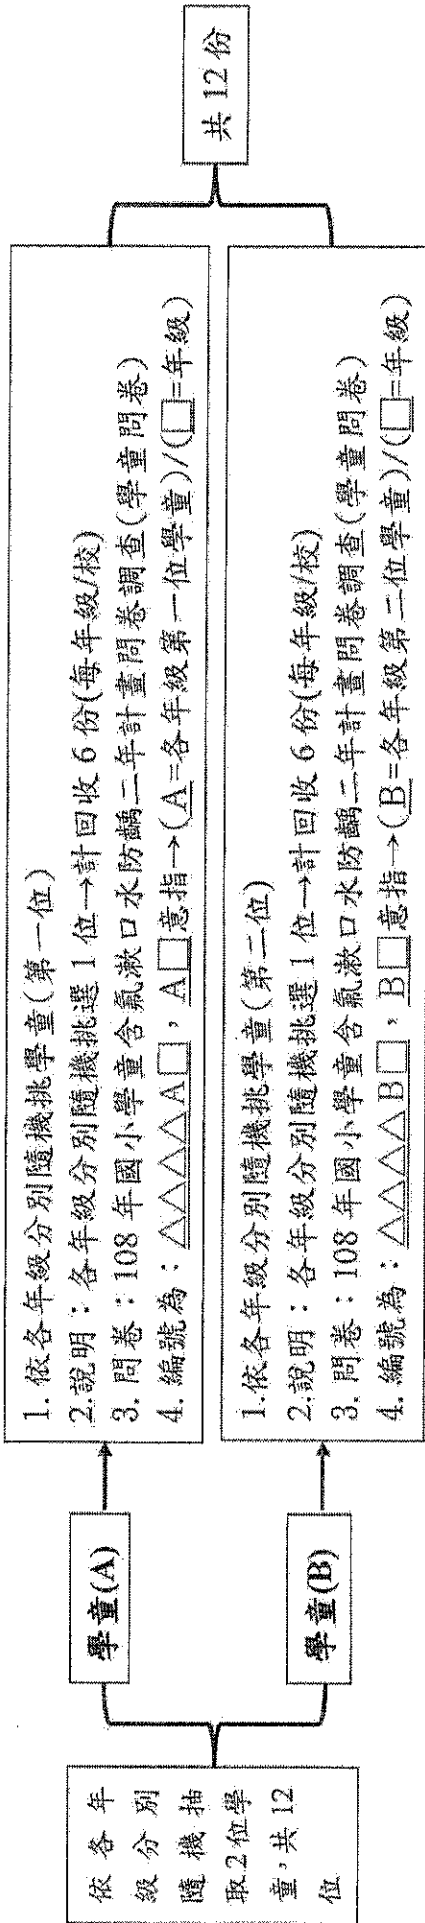 依各年
級分別
隨機抽
取2位學
童，共12
位
學童(A)
1. 依各年級分別隨機挑學童(第一位)
2.說明：各年級分別隨機挑選 1 位→計回收 6 份(每年級/校)
3. 問卷：108 年國小學童含氟漱口水防齲二年計畫問卷調查(學童問卷)
4. 編號為：△△△△△A□，A□意指→(A=各年級第一位學童)/(□=年級)
學童(B)
1.依各年級分別隨機挑學童(第二位)
2.說明：各年級分別隨機挑選 1 位→計回收 6 份(每年級/校)
3. 問卷：108 年國小學童含氟漱口水防齲二年計畫問卷調查(學童問卷)
4. 編號為：△△△△△B□，B□意指→(B=各年級第二位學童)/(□=年級)
共 12 份